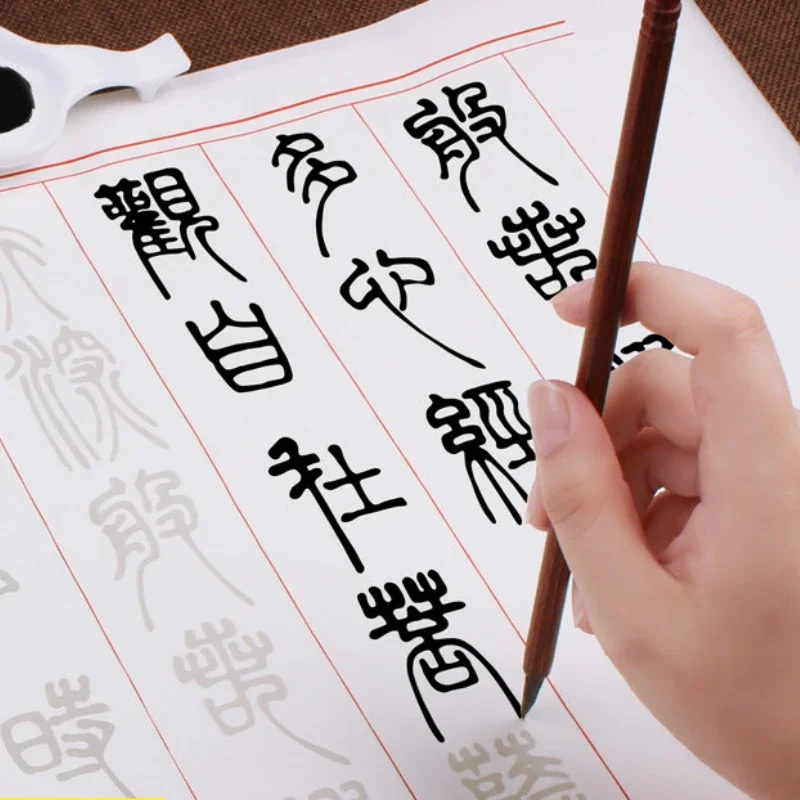 般若
多心經
觀自在菩薩
行深般若
時